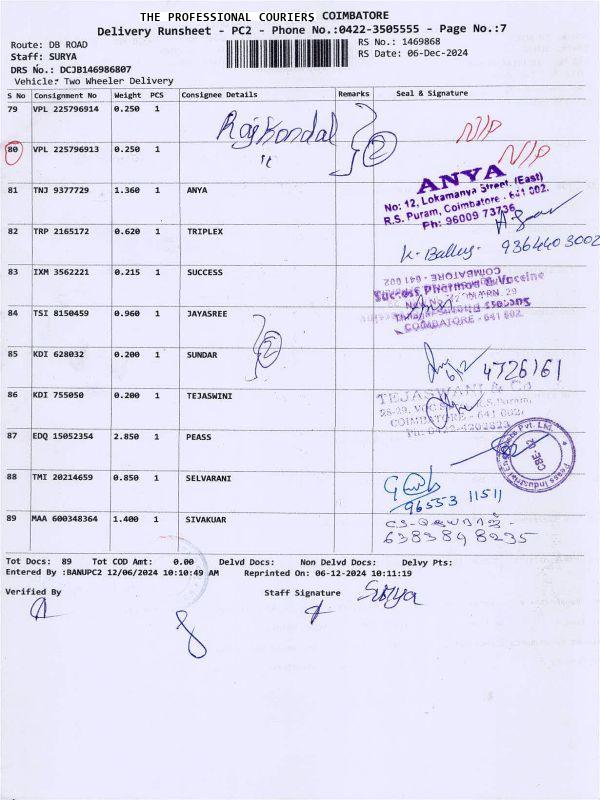 THE PROFESSIONAL COURIERS COIMBATORE
Delivery Runsheet - PC2 - Phone No.:0422-3505555 - Page No.:7
Route: DB ROAD
RS No.: 1469868
Staff: SURYA
RS Date: 06-Dec-2024
DRS No.: DCJB146986807
Vehicle: Two Wheeler Delivery
S No Consignment No Weight PCS Consignee Details Remarks Seal & Signature
79 VPL 225796914 0.250 1
Rajkondal 2 N/P
80 VPL 225796913 0.250 1 N/P
81 TNJ 9377729 1.360 1 ANYA
ANYA
No: 12, Lokamanya Street, (East)
R.S. Puram, Coimbatore - 641 002.
Ph: 96009 73736
82 TRP 2165172 0.620 1 TRIPLEX
9364403002
83 IXM 3562221 0.215 1 SUCCESS
Success Pharma & Vaccine
COIMBATORE - 641 002
84 TSI 8150459 0.960 1 JAYASREE
2
85 KDI 628032 0.200 1 SUNDAR
4726161
86 KDI 755050 0.200 1 TEJASWINI
TEJASWANI & Co
COIMBATORE - 641 002
87 EDQ 15052354 2.850 1 PEASS
CBE
88 TMI 20214659 0.850 1 SELVARANI
96553 11511
89 MAA 600348364 1.400 1 SIVAKUAR
6383848235
Tot Docs: 89 Tot COD Amt: 0.00 Delvd Docs: Non Delvd Docs: Delvy Pts:
Entered By :BANUPC2 12/06/2024 10:10:49 AM Reprinted On: 06-12-2024 10:11:19
Verified By Staff Signature Surya